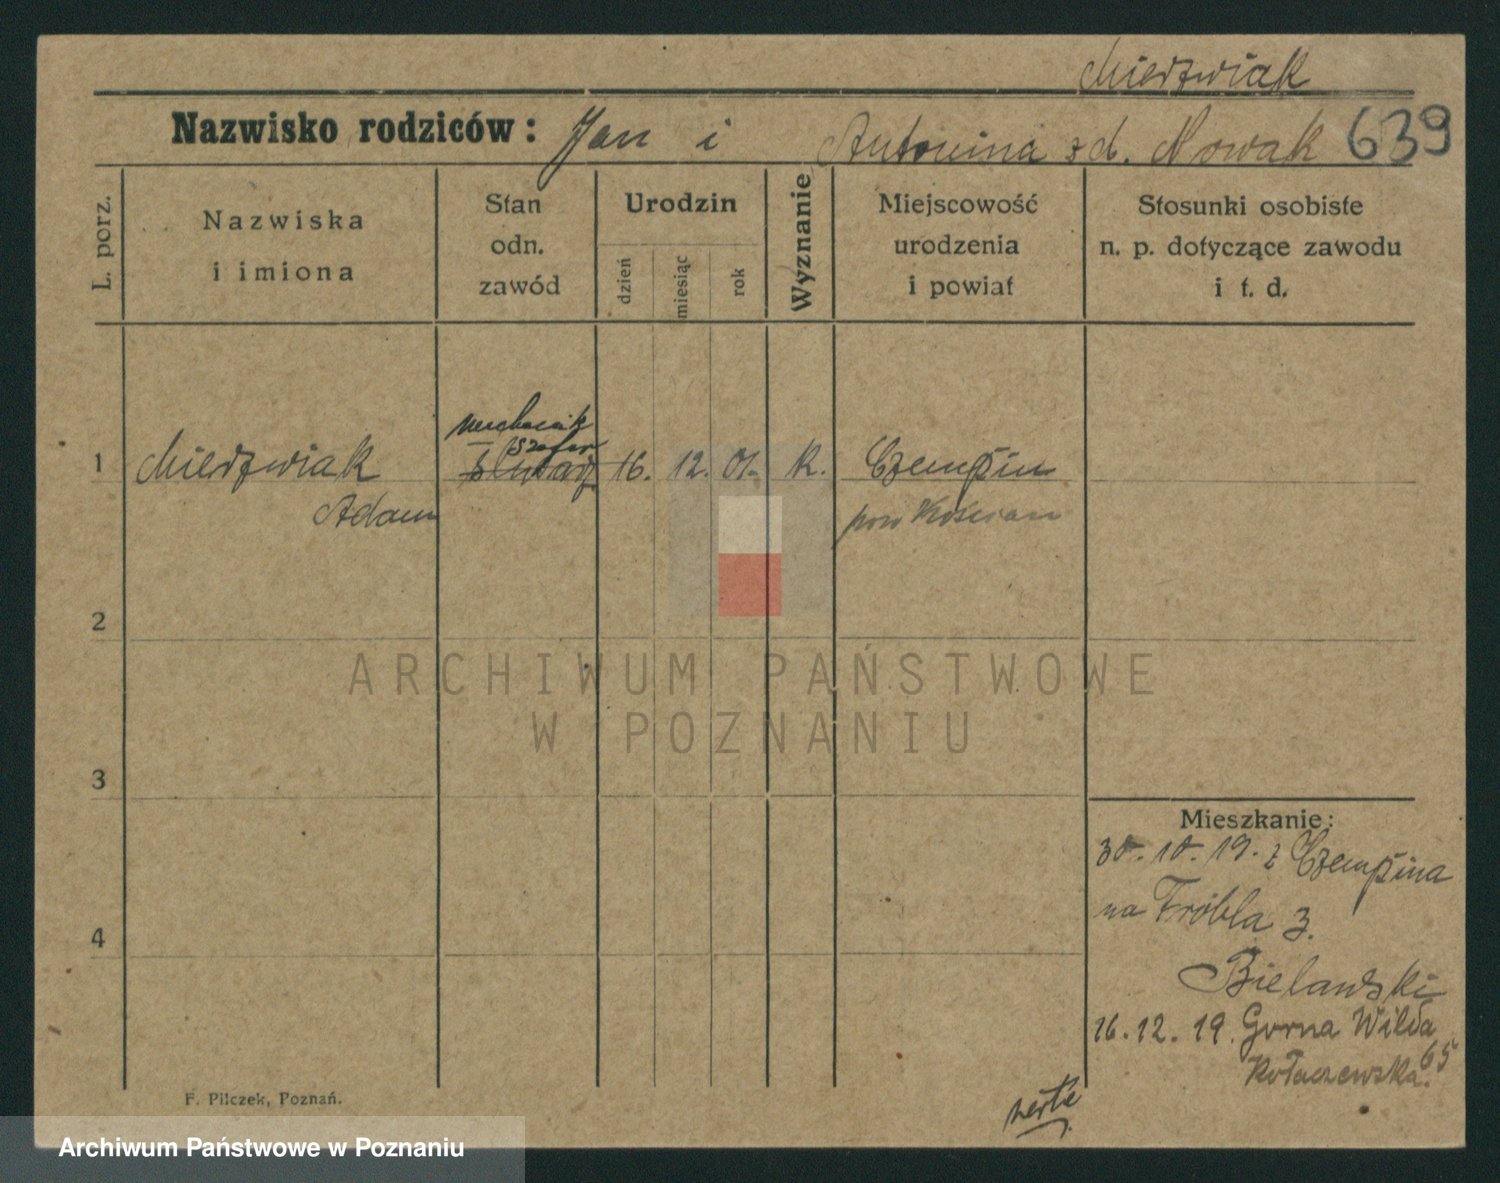 Mierzwiak
Nazwisko rodziców: Jan i Antonina z d. Nowak 639
L. porz.
Nazwiska
i imiona
Stan
odn.
zawód
Urodzin
dzień
miesiąc
rok
Wyznanie
Miejscowość
urodzenia
i powiat
Stosunki osobiste
n. p. dotyczące zawodu
i t. d.
mechanik
szofer
1 Mierzwiak ślusarz 16. 12. 01. k. Czempiń
Adam pow Kościan
2
3
4
Mieszkanie:
30. 10. 19. z Czempina
na Fröbla 3.
Bielawski
16. 12. 19. Gorna Wilda
65
Kołaczewska.
verte
F. Pilczek, Poznań.
ARCHIWUM PAŃSTWOWE
W POZNANIU
Archiwum Państwowe w Poznaniu